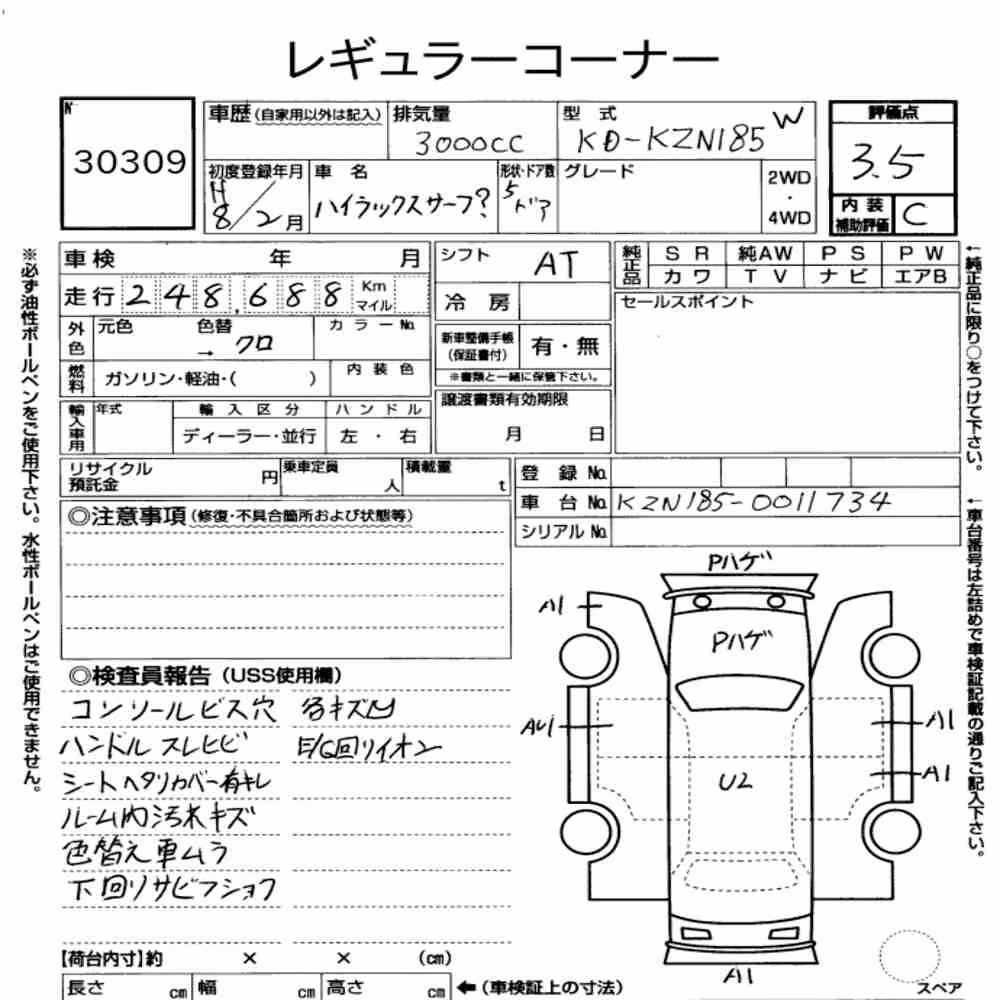 レギュラーコーナー
№ 30309
車歴 (自家用以外は記入)
排気量
3000CC
型 式
KD-KZN185 W
評価点
3.5
初度登録年月
H 8/2月
車 名
ハイラックスサーフ?
形状・ドア数
5ドア
グレード
2WD
・
4WD
内 装
補助評価
C
※必ず油性ボールペンをご使用下さい。水性ボールペンはご使用できません。
車検 年 月
走行 248,688 Km マイル
外色 元色 色替 → クロ カラーNo.
燃料 ガソリン・軽油・( ) 内装色
輸入車用 年式 輸入区分 ハンドル
ディーラー・並行 左・右
シフト AT
冷 房
新車整備手帳
(保証書付) 有・無
※書類と一緒に保管下さい。
譲渡書類有効期限
月 日
純正品 SR 純AW PS PW
カワ TV ナビ エアB
セールスポイント
←純正品に限り○をつけて下さい。
リサイクル
預託金 円
乗車定員 人
積載量 t
登 録 No.
車 台 No. KZN185-0011734
シリアル No.
←車台番号は左詰めで車検証記載の通りご記入下さい。
◎注意事項 (修復・不具合箇所および状態等)
◎検査員報告 (USS使用欄)
コンソールビス穴 各キズ凹
ハンドル スレヒビ E/G回リイオン
シートヘタリカバー有キレ
ルーム内汚れキズ
色替え車ムラ
下回リサビフショク
Pハゲ
A1
Pハゲ
AU1
A1
A1
U2
A1
スペア
【荷台内寸】約 × × (cm)
長さ cm 幅 cm 高さ cm ←(車検証上の寸法)